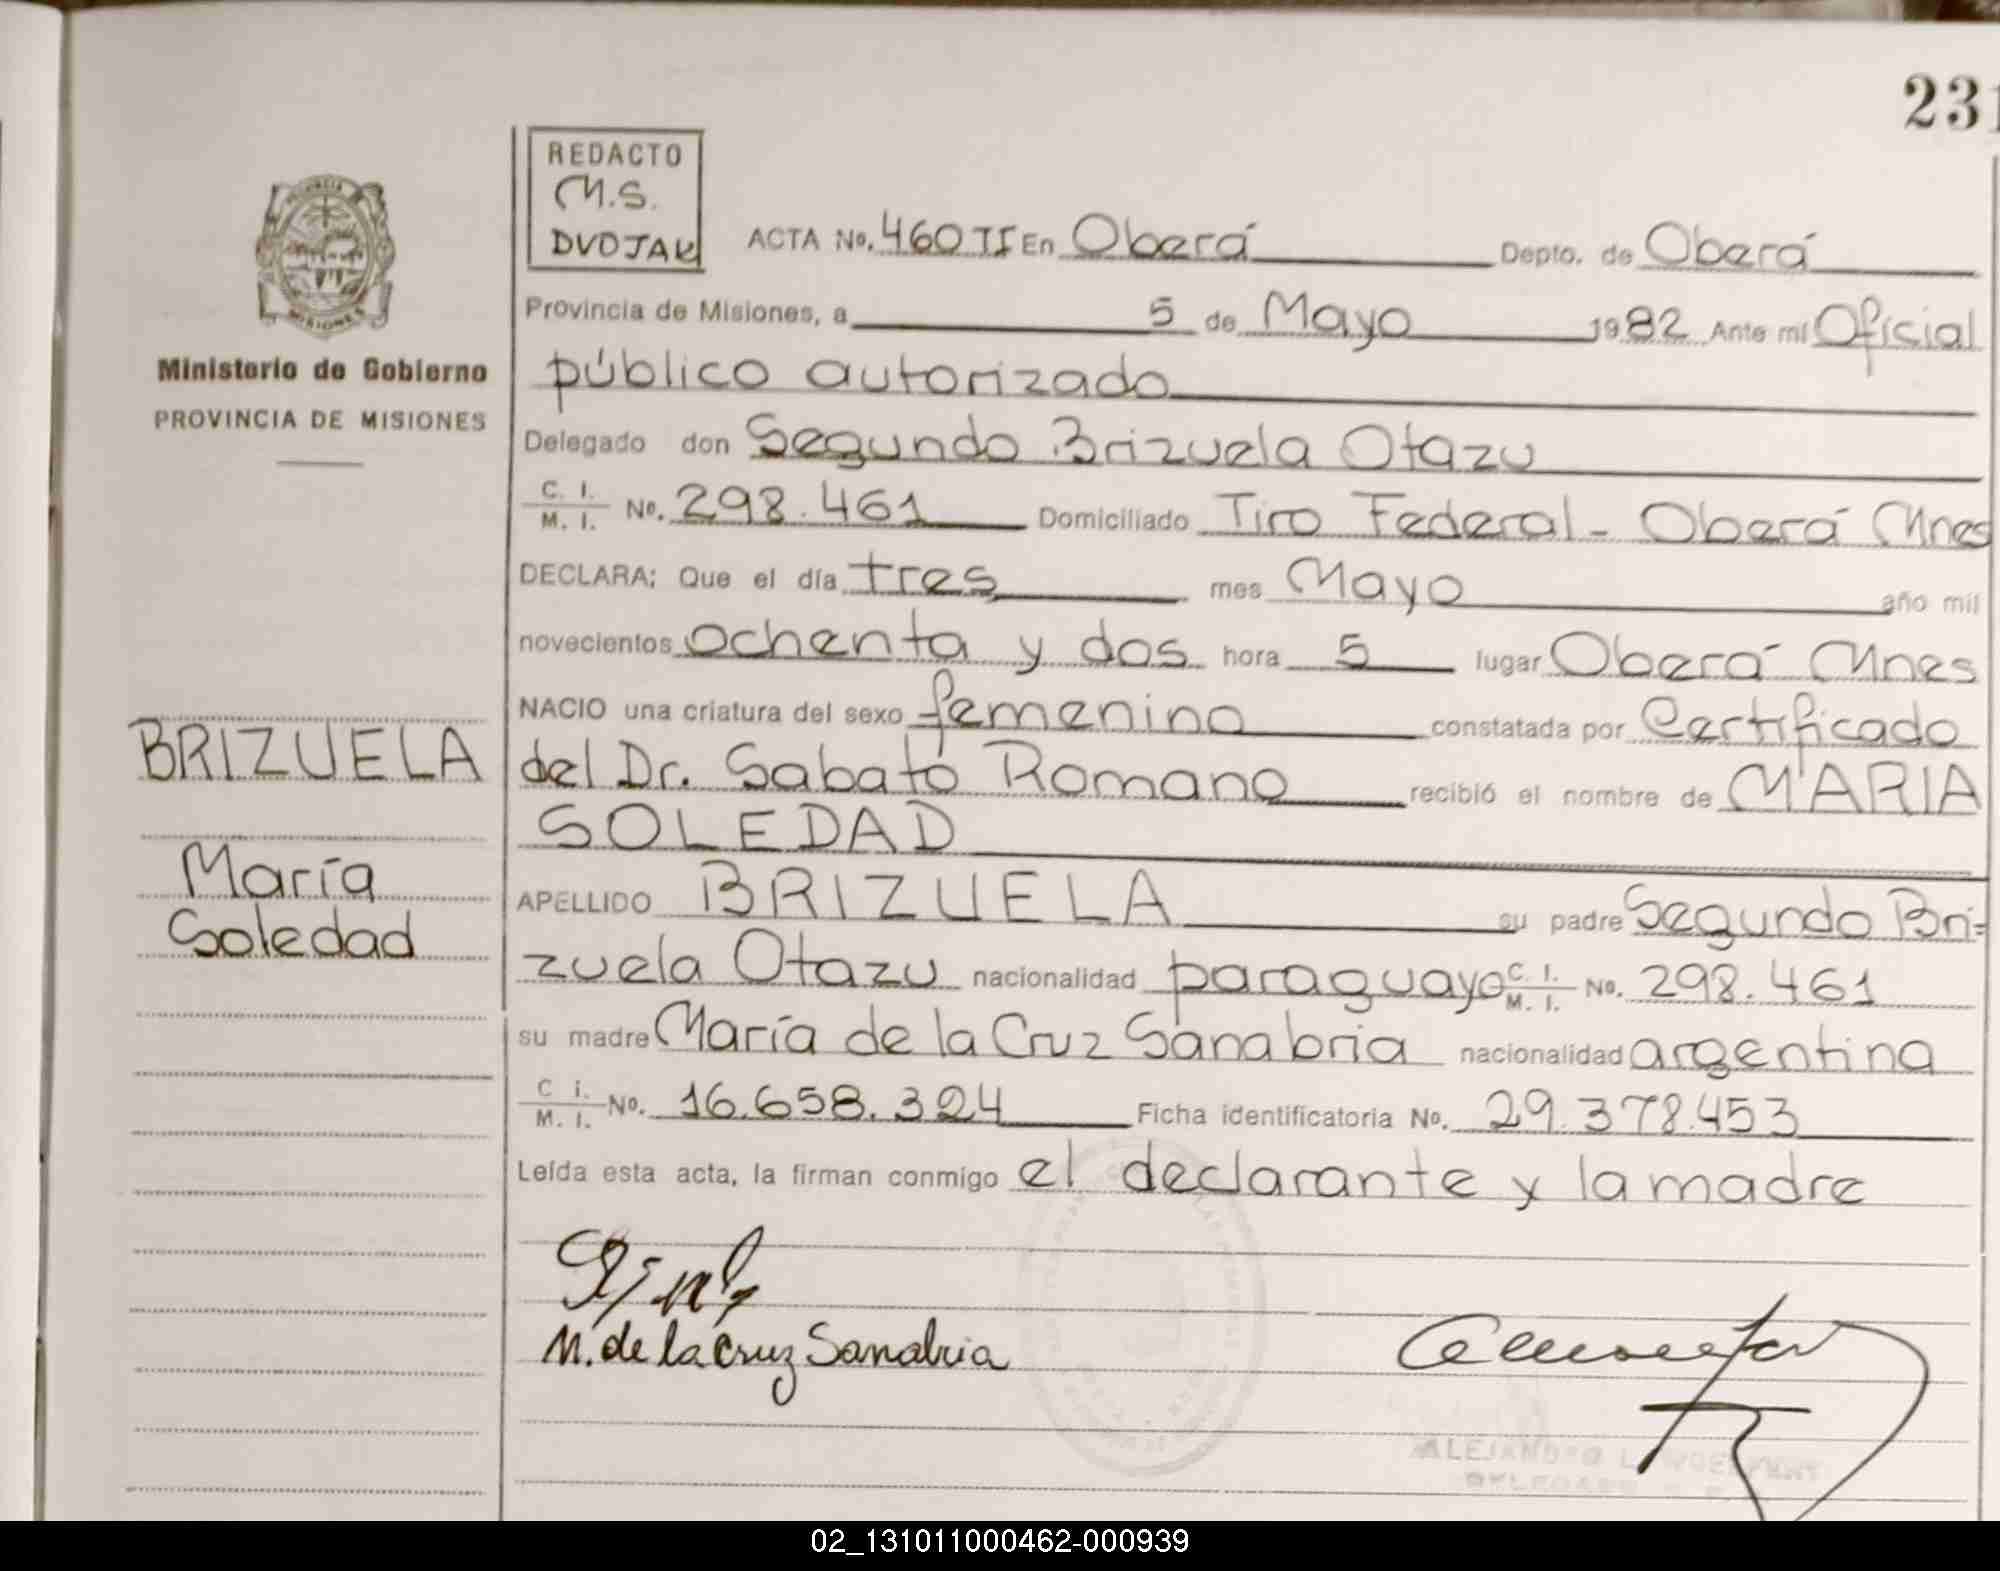 231
REDACTO
M.S.
DVOJAK
MISIONES
Ministerio de Gobierno
PROVINCIA DE MISIONES
ACTA No. 460 TI En Oberá Depto. de Oberá
Provincia de Misiones, a 5 de Mayo 1982 Ante mi Oficial
público autorizado
Delegado don Segundo Brizuela Otazu
C. I. M. I. No. 298.461 Domiciliado Tiro Federal - Oberá Mnes
DECLARA: Que el día tres mes Mayo año mil
novecientos ochenta y dos hora 5 lugar Oberá Mnes
NACIO una criatura del sexo femenino constatada por Certificado
del Dr. Sabató Romano recibió el nombre de MARIA
SOLEDAD
APELLIDO BRIZUELA su padre Segundo Bri=
zuela Otazu nacionalidad paraguayo C. I. M. I. No. 298.461
su madre María de la Cruz Sanabria nacionalidad argentina
C i. M. I. No. 16.658.324 Ficha identificatoria No. 29.378.453
Leída esta acta, la firman conmigo el declarante y la madre
BRIZUELA
María
Soledad
M. de la Cruz Sanabria
ALEJANDRO L.
02_131011000462-000939